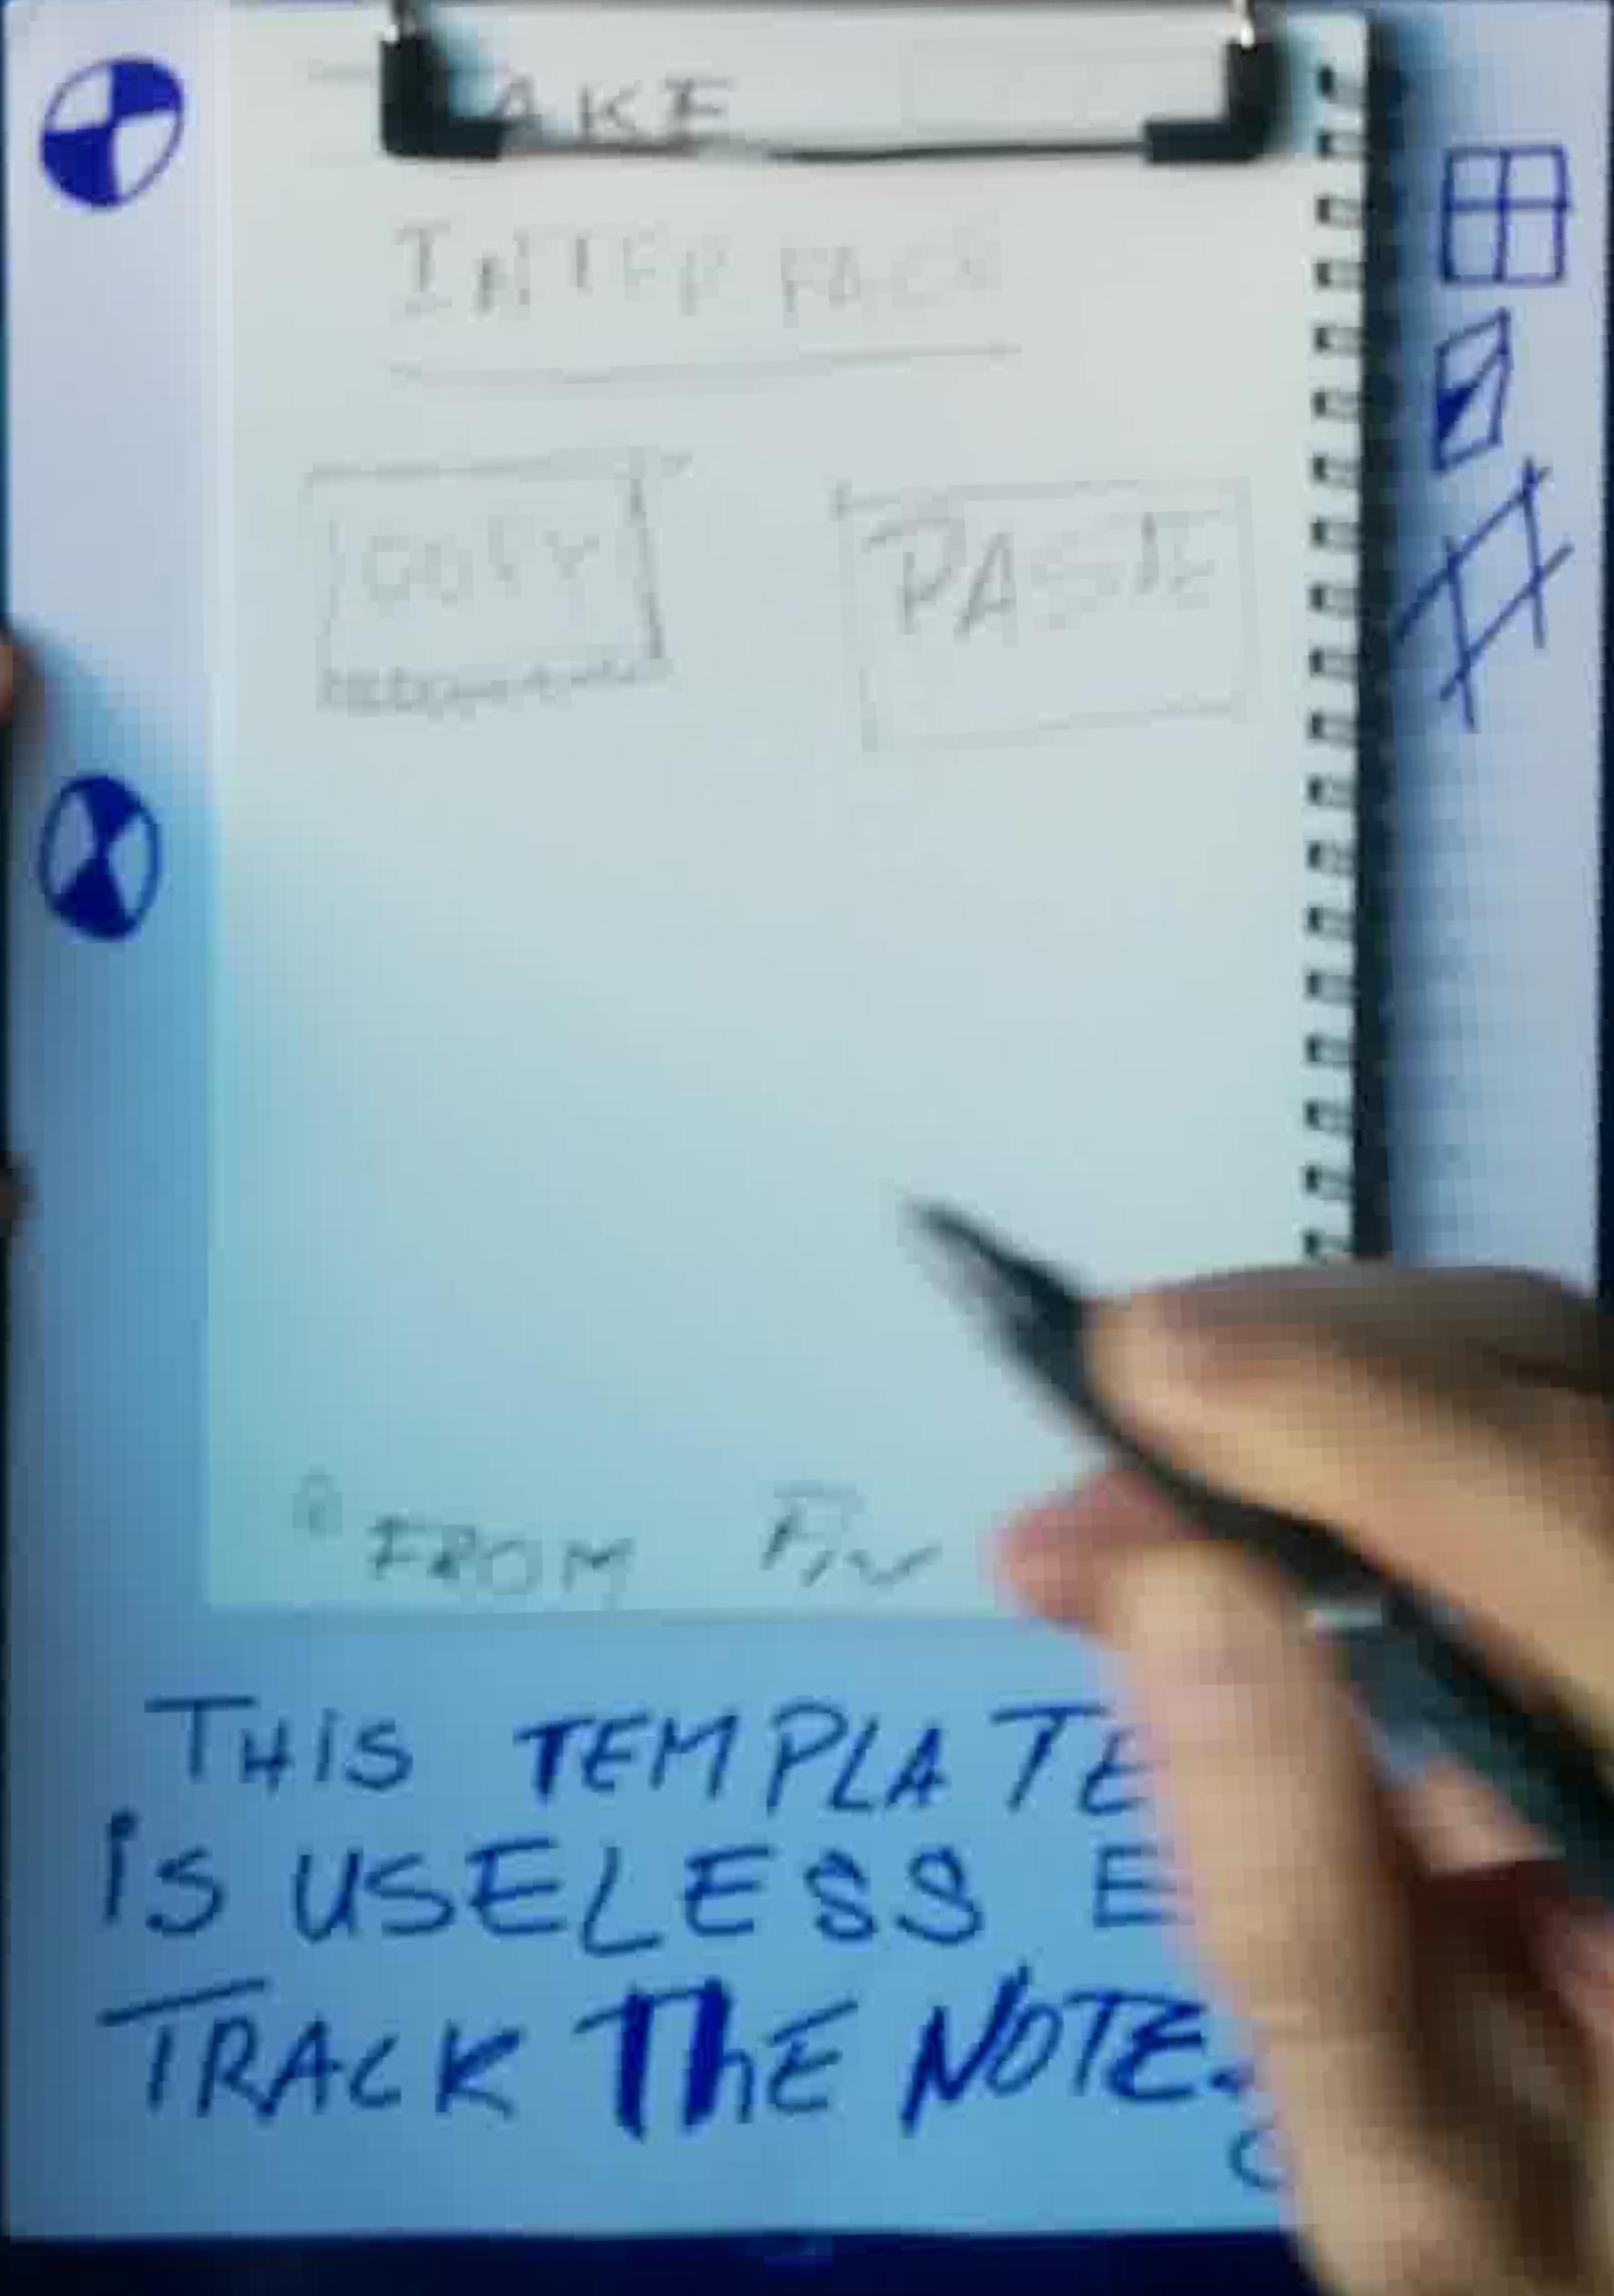 AKE
INTERFACE
COPY PASTE
FROM
THiS TEMPLATE
iS USELESS E
TRACK ThE NOTE.